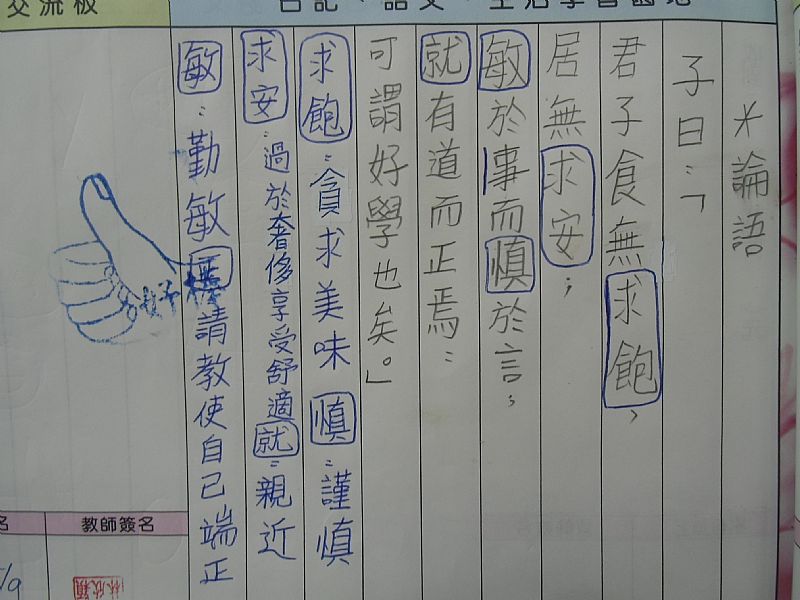 日記、語文、生活學習園地
交流板
＊論語
子曰：「
君子食無求飽，
居無求安；
敏於事而慎於言；
就有道而正焉：
可謂好學也矣。」
求飽：貪求美味 慎：謹慎
求安：過於奢侈享受舒適 就：親近
敏：勤敏 請教使自己端正
好棒
教師簽名
名